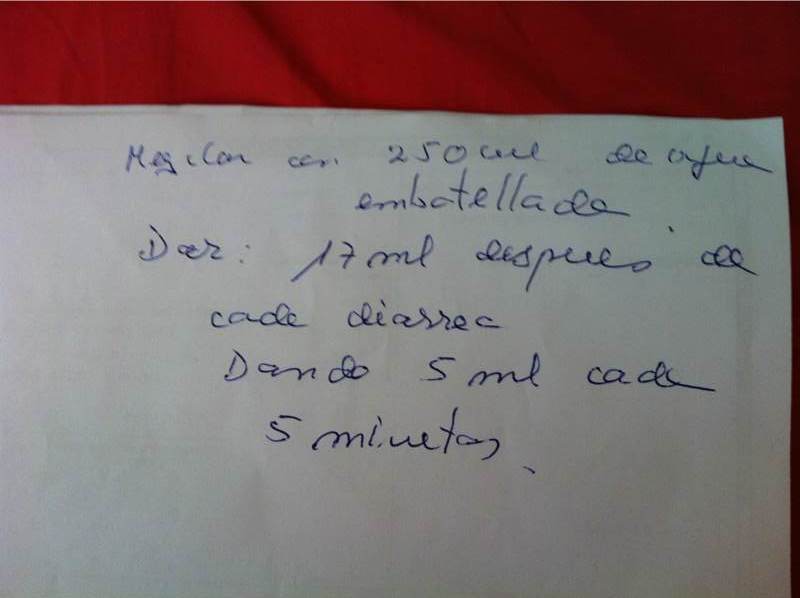 Mezclar con 250 ml de agua
embotellada.
Dar: 17 ml despues de
cada diarrea
Dando 5 ml cada
5 minutos.